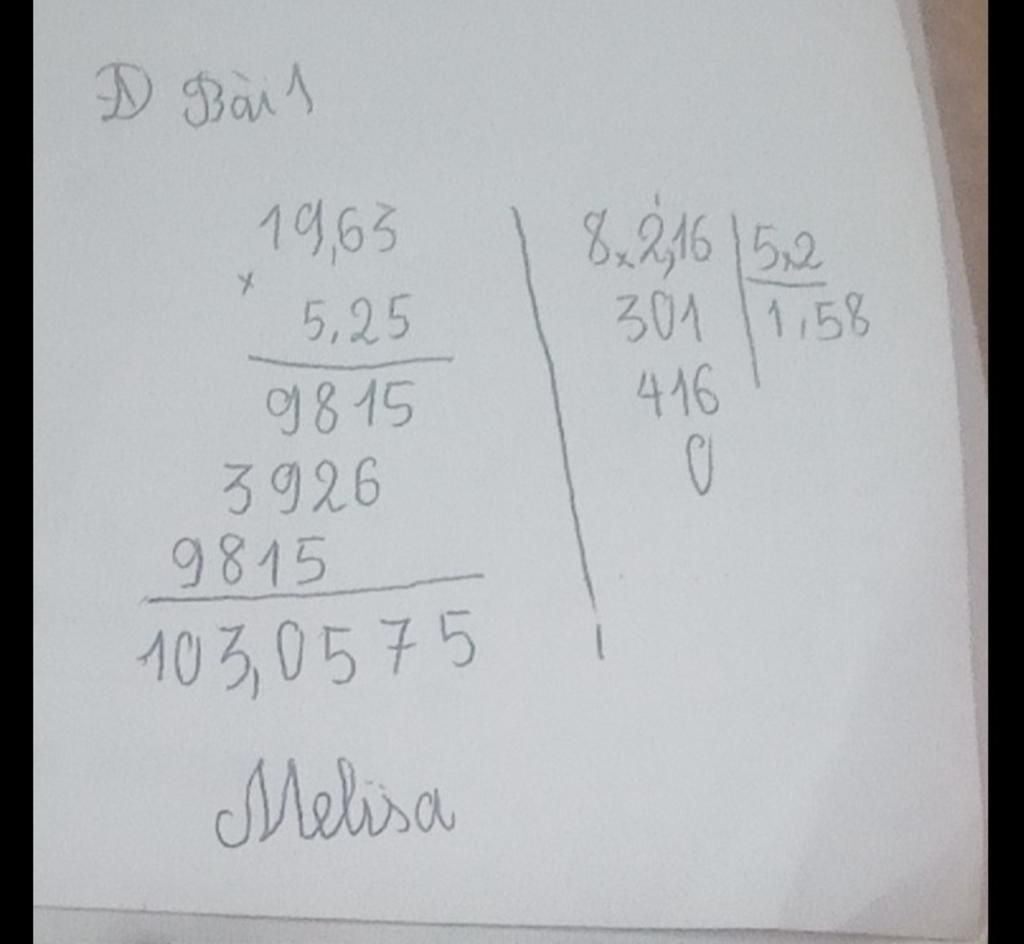 D Bài 1
19,63
×
5,25
9815
3926
9815
103,0575
8,2,16 5,2
301 1,58
416
0
Melisa